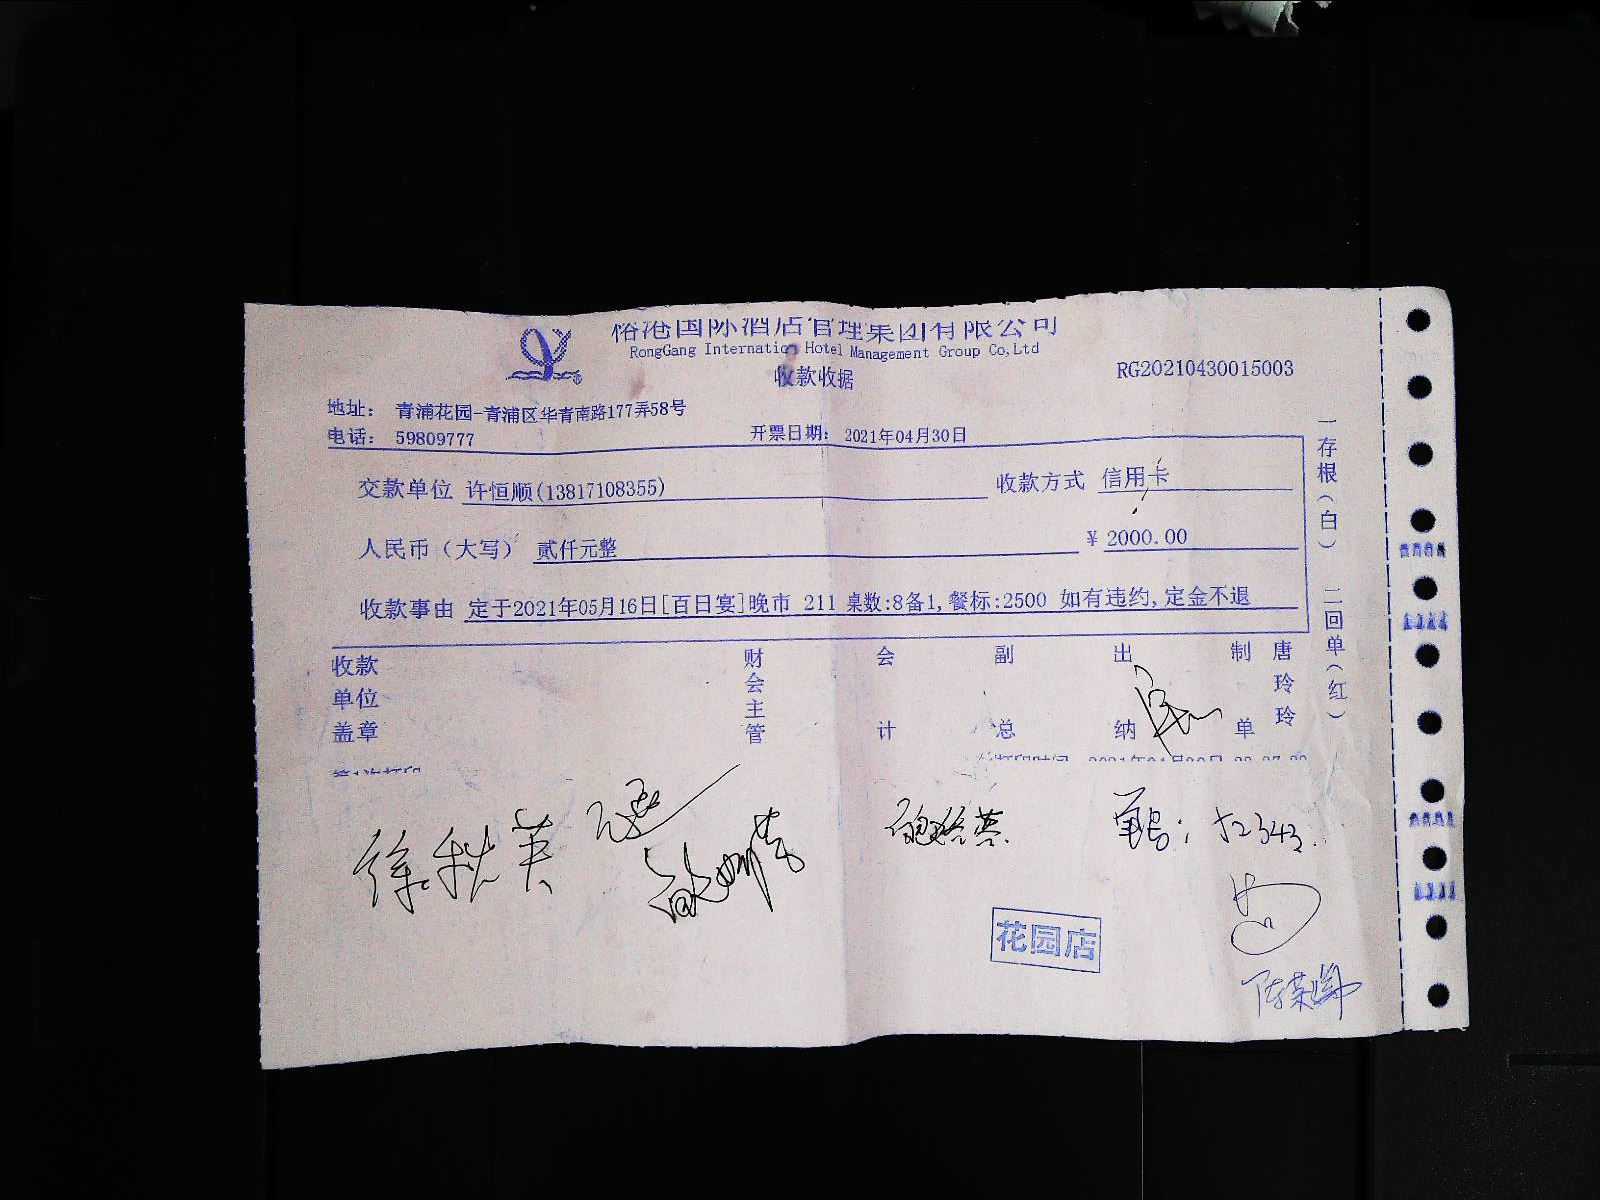 国际酒店管理集团有限公司
RongGang Internatio Hotel Management Group Co,Ltd
收款收据
RG20210430015003
地址： 青浦花园-青浦区华青南路177弄58号
电话： 59809777
开票日期： 2021年04月30日
交款单位 许恒顺(13817108355)
收款方式 信用卡
人民币（大写） 贰仟元整
¥ 2000.00
收款事由 定于2021年05月16日[百日宴]晚市 211 桌数:8备1,餐标:2500 如有违约,定金不退
收款单位盖章
财会主管
会计
副总
出纳
制单
唐玲玲
一存根（白） 二回单（红）
徐秋英
52343
花园店